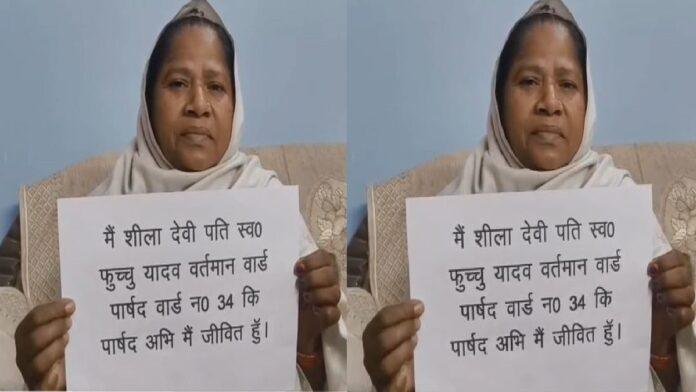 मैं शीला देवी पति स्व0
फुच्चु यादव वर्तमान वार्ड
पार्षद वार्ड न0 34 कि
पार्षद अभि मैं जीवित हुँ।
मैं शीला देवी पति स्व0
फुच्चु यादव वर्तमान वार्ड
पार्षद वार्ड न0 34 कि
पार्षद अभि मैं जीवित हुँ।